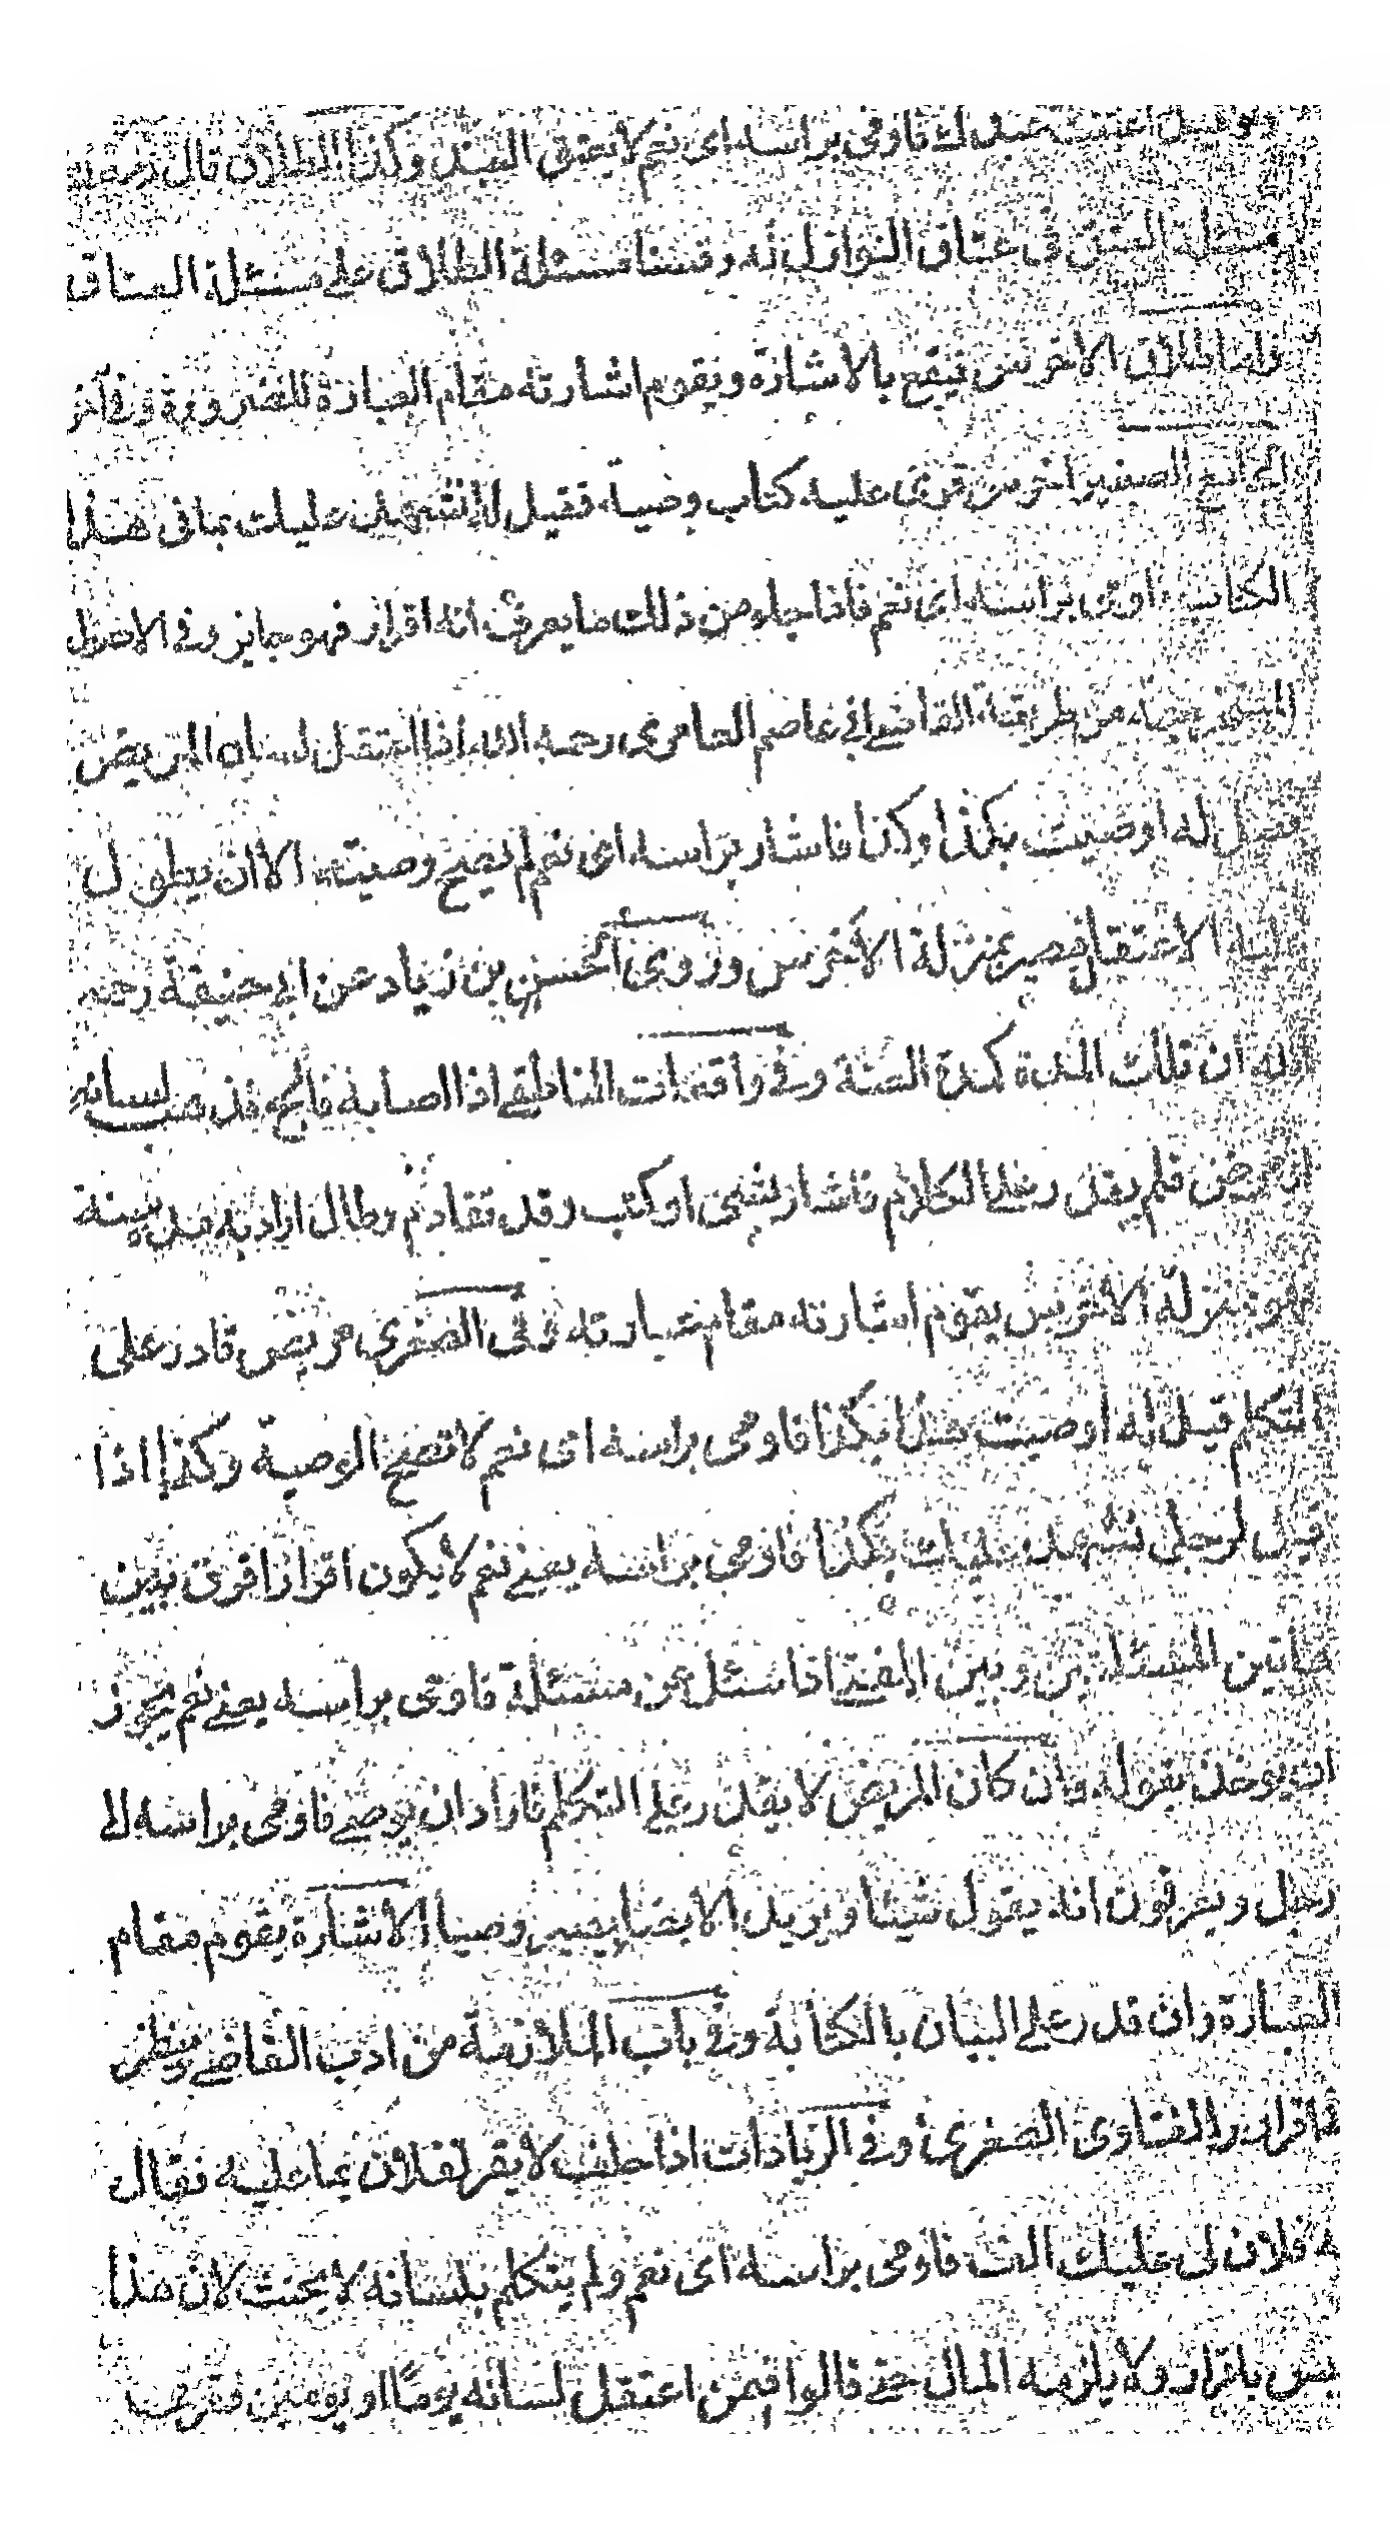 ولو قيل اعتقت عبدك فاومى براسه اى نعم لا يعتق العبد وكذا الطلاق قال رضى
مسئلة العتق فى عتاق النوازل له وقسنا مسئلة الطلاق على مسئلة العتاق
واما طلاق الاخرس فيقع بالاشارة ويقوم اشارته مقام العبارة للضرورة وفى آخر
الجامع الصغير اخرس قرى عليه كتاب وصية فقيل له انشهد عليك بما فى هذا
الكتاب اومى براسه اى نعم فاذا جاء من ذلك ما يعرف انه اقرار فهو جايز وفى الاصل
من طريقة القاضى ابى عاصم العامرى رحمه الله اذا اعتقل لسان المريض
فقيل له اوصيت بكذا وكذا فاشار براسه اى نعم لم يصح وصيته الا ان يطول
الاعتقال فيصير بمنزلة الاخرس وروى الحسن بن زياد عن ابى حنيفة رحمه
الله ان تلك المدة كمدة السنة وفى واقعات الناطفى اذا اصابه فالج فذهب لسانه
او مرض فلم يقدر على الكلام فاشار بشى او كتب وقد تقادم وطال اراد به سنة
فهو بمنزلة الاخرس يقوم اشارته مقام عبارته وفى الصغرى مريض قادر على
التكلم قيل له اوصيت بكذا فاومى براسه اى نعم لا تصح الوصية وكذا اذا
قيل لرجل نشهد عليك بكذا فاومى براسه يعنى نعم لا يكون اقرارا فرق بين
هاتين المسئلتين وبين المفتى اذا سئل عن مسئلة فاومى براسه يعنى نعم يجوز
ان يوخذ بقوله وان كان المريض لا يقدر على التكلم فاراد ان يوصى فاومى براسه الى
رجل ويعرفون انه يقول شيئا ويريد الايصا يصير وصيا الاشارة يقوم مقام
العبارة وان قدر على البيان بالكتابة وفى باب الملازمة من ادب القاضى وينظر
فاقرار الفتاوى الصغرى وفى الزيادات اذا حلف لا يقر لفلان بما عليه فقال
له فلان لى عليك الف فاومى براسه اى نعم ولم يتكلم بلسانه لا يحنث لان هذا
ليس باقرار ولا يلزمه المال حتى قالوا فيمن اعتقل لسانه يوما او يومين فقرى